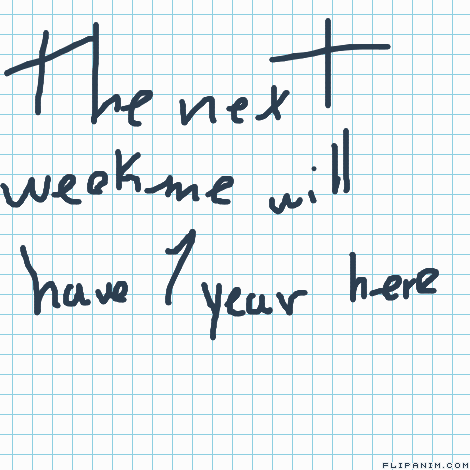 The next
week me will
have 1 year here
FLIPANIM.COM